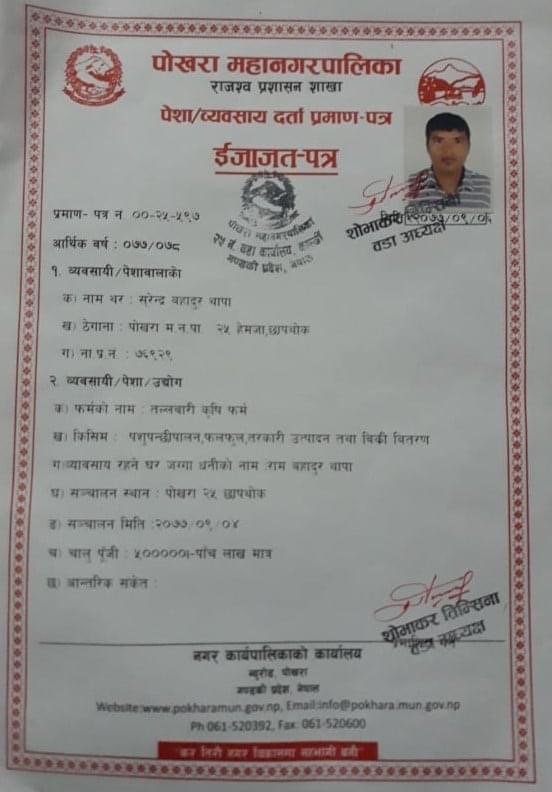 पोखरा महानगरपालिका
राजश्व प्रशासन शाखा
पेशा/व्यवसाय दर्ता प्रमाण-पत्र
ईजाजत-पत्र
प्रमाण- पत्र नं ००-२५-५९७
मिति :२०७७/०९/०६
शोभाकर तिम्सिना
वडा अध्यक्ष
पोखरा महानगरपालिका
२५ नं. वडा कार्यालय, कास्की
गण्डकी प्रदेश, नेपाल
आर्थिक बर्ष : ०७७/०७८
१. व्यवसायी/पेशावालाको
क) नाम थर : सुरेन्द्र बहादुर थापा
ख) ठेगाना : पोखरा म.न.पा २५ हेमजा,छापथोक
ग) ना.प्र.न. : ७६९२९
२. व्यवसायी/पेशा/उद्योग
क) फर्मको नाम : तल्लबारी कृषि फर्म
ख) किसिम : पशुपन्छीपालन,फलफुल,तरकारी उत्पादन तथा बिक्री बितरण
ग)व्यावसाय रहने घर जग्गा धनीको नाम :राम बहादुर थापा
घ) सञ्चालन स्थान : पोखरा २५ छापथोक
ङ) सञ्चालन मिति :२०७७/०९/०४
च) चालु पूँजी : ५०००००।-पाँच लाख मात्र
छ) आन्तरिक संकेत :
शोभाकर तिम्सिना
वडा अध्यक्ष
नगर कार्यपालिकाको कार्यालय
न्युरोड, पोखरा
गण्डकी प्रदेश, नेपाल
Website:www.pokharamun.gov.np, Email:info@pokhara.mun.gov.np
Ph 061-520392, Fax: 061-520600
"कर तिरी नगर विकासमा सहभागी बनौं"